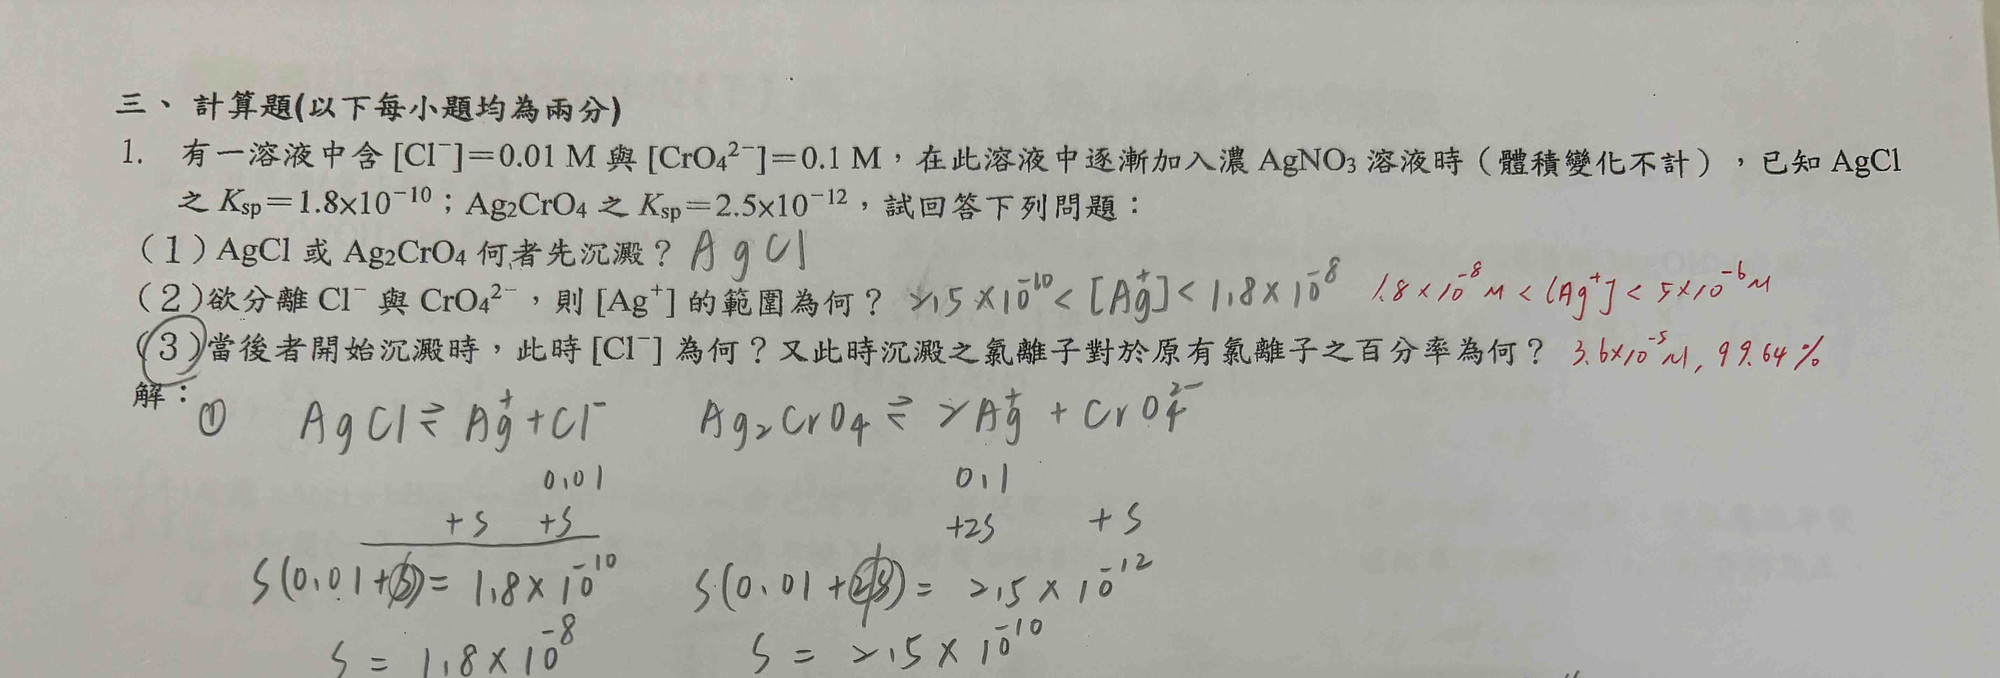 三、計算題(以下每小題均為兩分)
1. 有一溶液中含 [Cl⁻]=0.01 M 與 [CrO₄²⁻]=0.1 M，在此溶液中逐漸加入濃 AgNO₃ 溶液時（體積變化不計），已知 AgCl
之 Ksp=1.8×10⁻¹⁰；Ag₂CrO₄ 之 Ksp=2.5×10⁻¹²，試回答下列問題：
（1）AgCl 或 Ag₂CrO₄ 何者先沉澱？ AgCl
（2）欲分離 Cl⁻ 與 CrO₄²⁻，則 [Ag⁺] 的範圍為何？ 2.5×10⁻¹⁰ < [Ag⁺] < 1.8×10⁻⁸ 1.8×10⁻⁸ M < [Ag⁺] < 5×10⁻⁶ M
（3）當後者開始沉澱時，此時 [Cl⁻] 為何？又此時沉澱之氯離子對於原有氯離子之百分率為何？ 3.6×10⁻⁵ M, 99.64%
解：
① AgCl ⇌ Ag⁺ + Cl⁻ Ag₂CrO₄ ⇌ 2Ag⁺ + CrO₄²⁻
0.01 0.1
+S +S +2S +S
S(0.01+S) = 1.8×10⁻¹⁰ S(0.01+2S) = 2.5×10⁻¹²
S = 1.8×10⁻⁸ S = 2.5×10⁻¹⁰